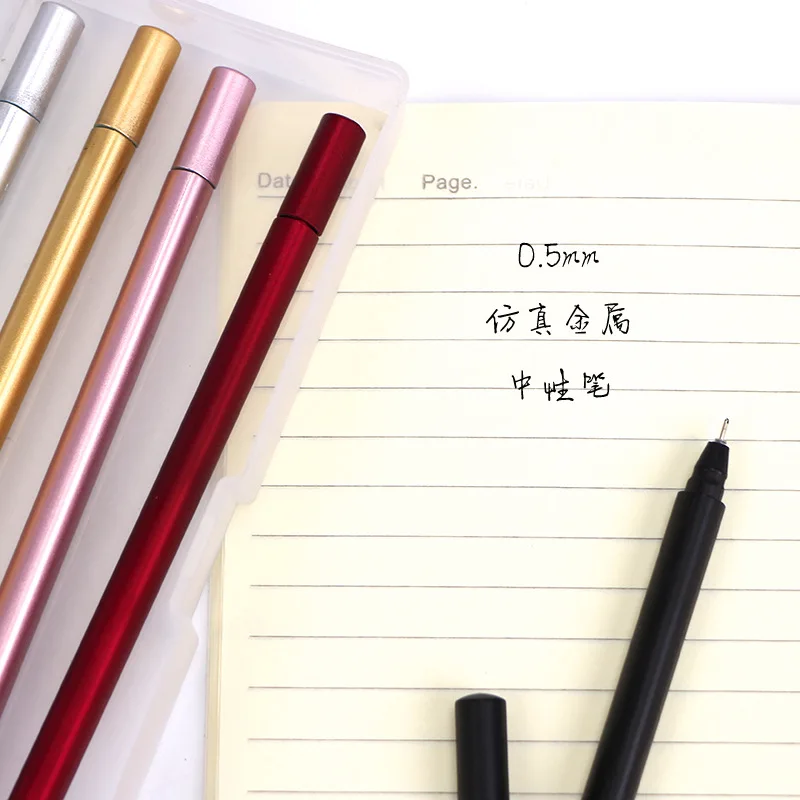 Page.
0.5mm
仿真金属
中性笔